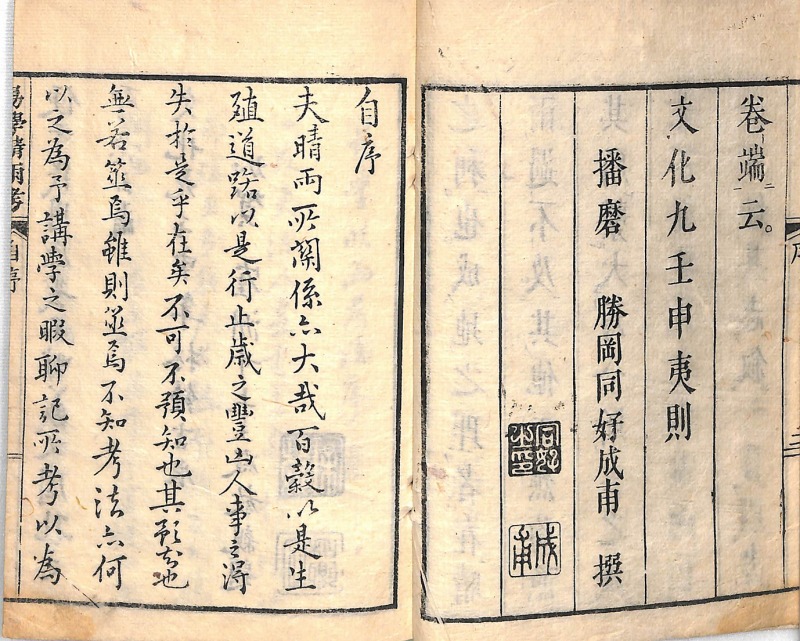 卷端云。
文化九壬申夷則
播磨 勝岡同好成甫 撰
同好之印
成甫
自序
夫晴雨所關係亦大哉百穀以是生
殖道路以是行止歳之豐凶人事之得
失於是乎在矣不可不預知也其預知也
無若筮焉雖則筮焉不知考法亦何
以之為予講學之暇聊記所考以為
易學晴雨考 自序